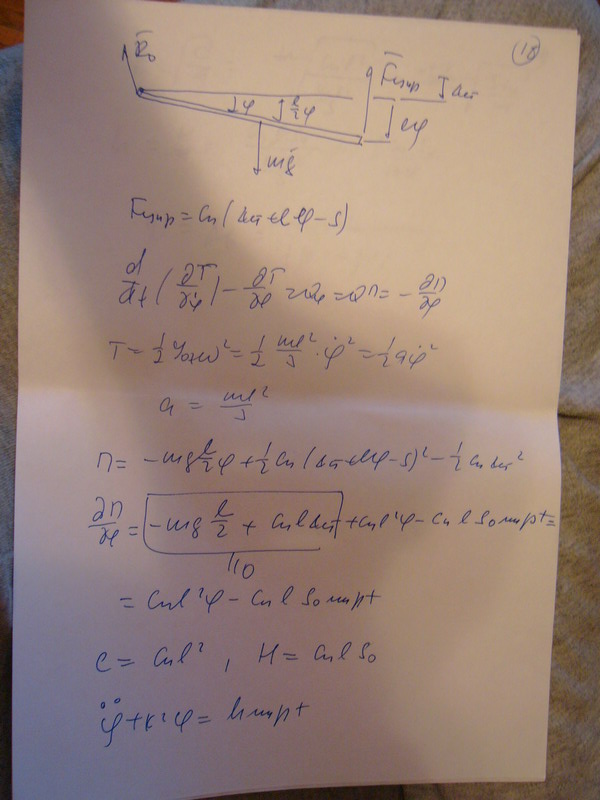 18
R̄₀
F̄упр
Δст
φ
l/2 φ
lφ
mḡ
Fупр = Cп (Δст + lφ - S)
d/dt (∂T/∂φ̇) - ∂T/∂φ = Qφ = Qп = - ∂П/∂φ
T = 1/2 Jox ω² = 1/2 ml²/3 · φ̇² = 1/2 a φ̇²
a = ml²/3
П = - mg l/2 φ + 1/2 Cп (Δст + lφ - S)² - 1/2 Cп Δст²
∂П/∂φ = - mg l/2 + Cп l Δст + Cп l² φ - Cп l S₀ sin pt =
0
= Cп l² φ - Cп l S₀ sin pt
C = Cп l² , H = Cп l S₀
φ̈ + k² φ = h sin pt